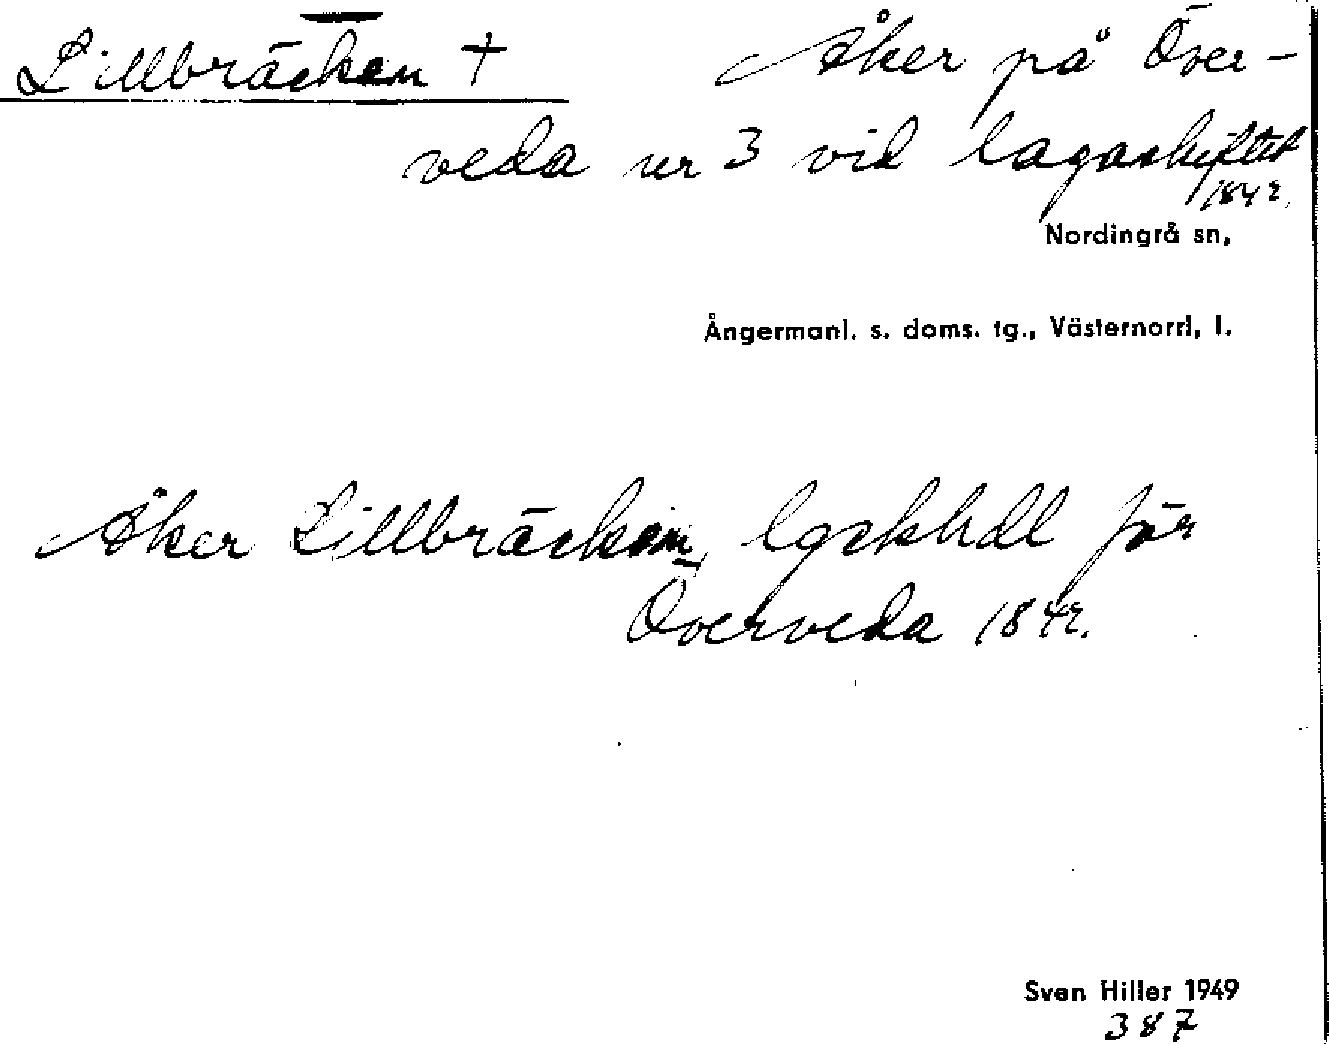 Lillbräcken † Åker på Över-
veda nr 3 vid lagaskiftet
1842.
Nordingrå sn,
Ångermanl. s. doms. tg., Västernorrl, l.
Åker Lillbräcken, lgskhdl för
Överveda 1842.
Sven Hiller 1949
387